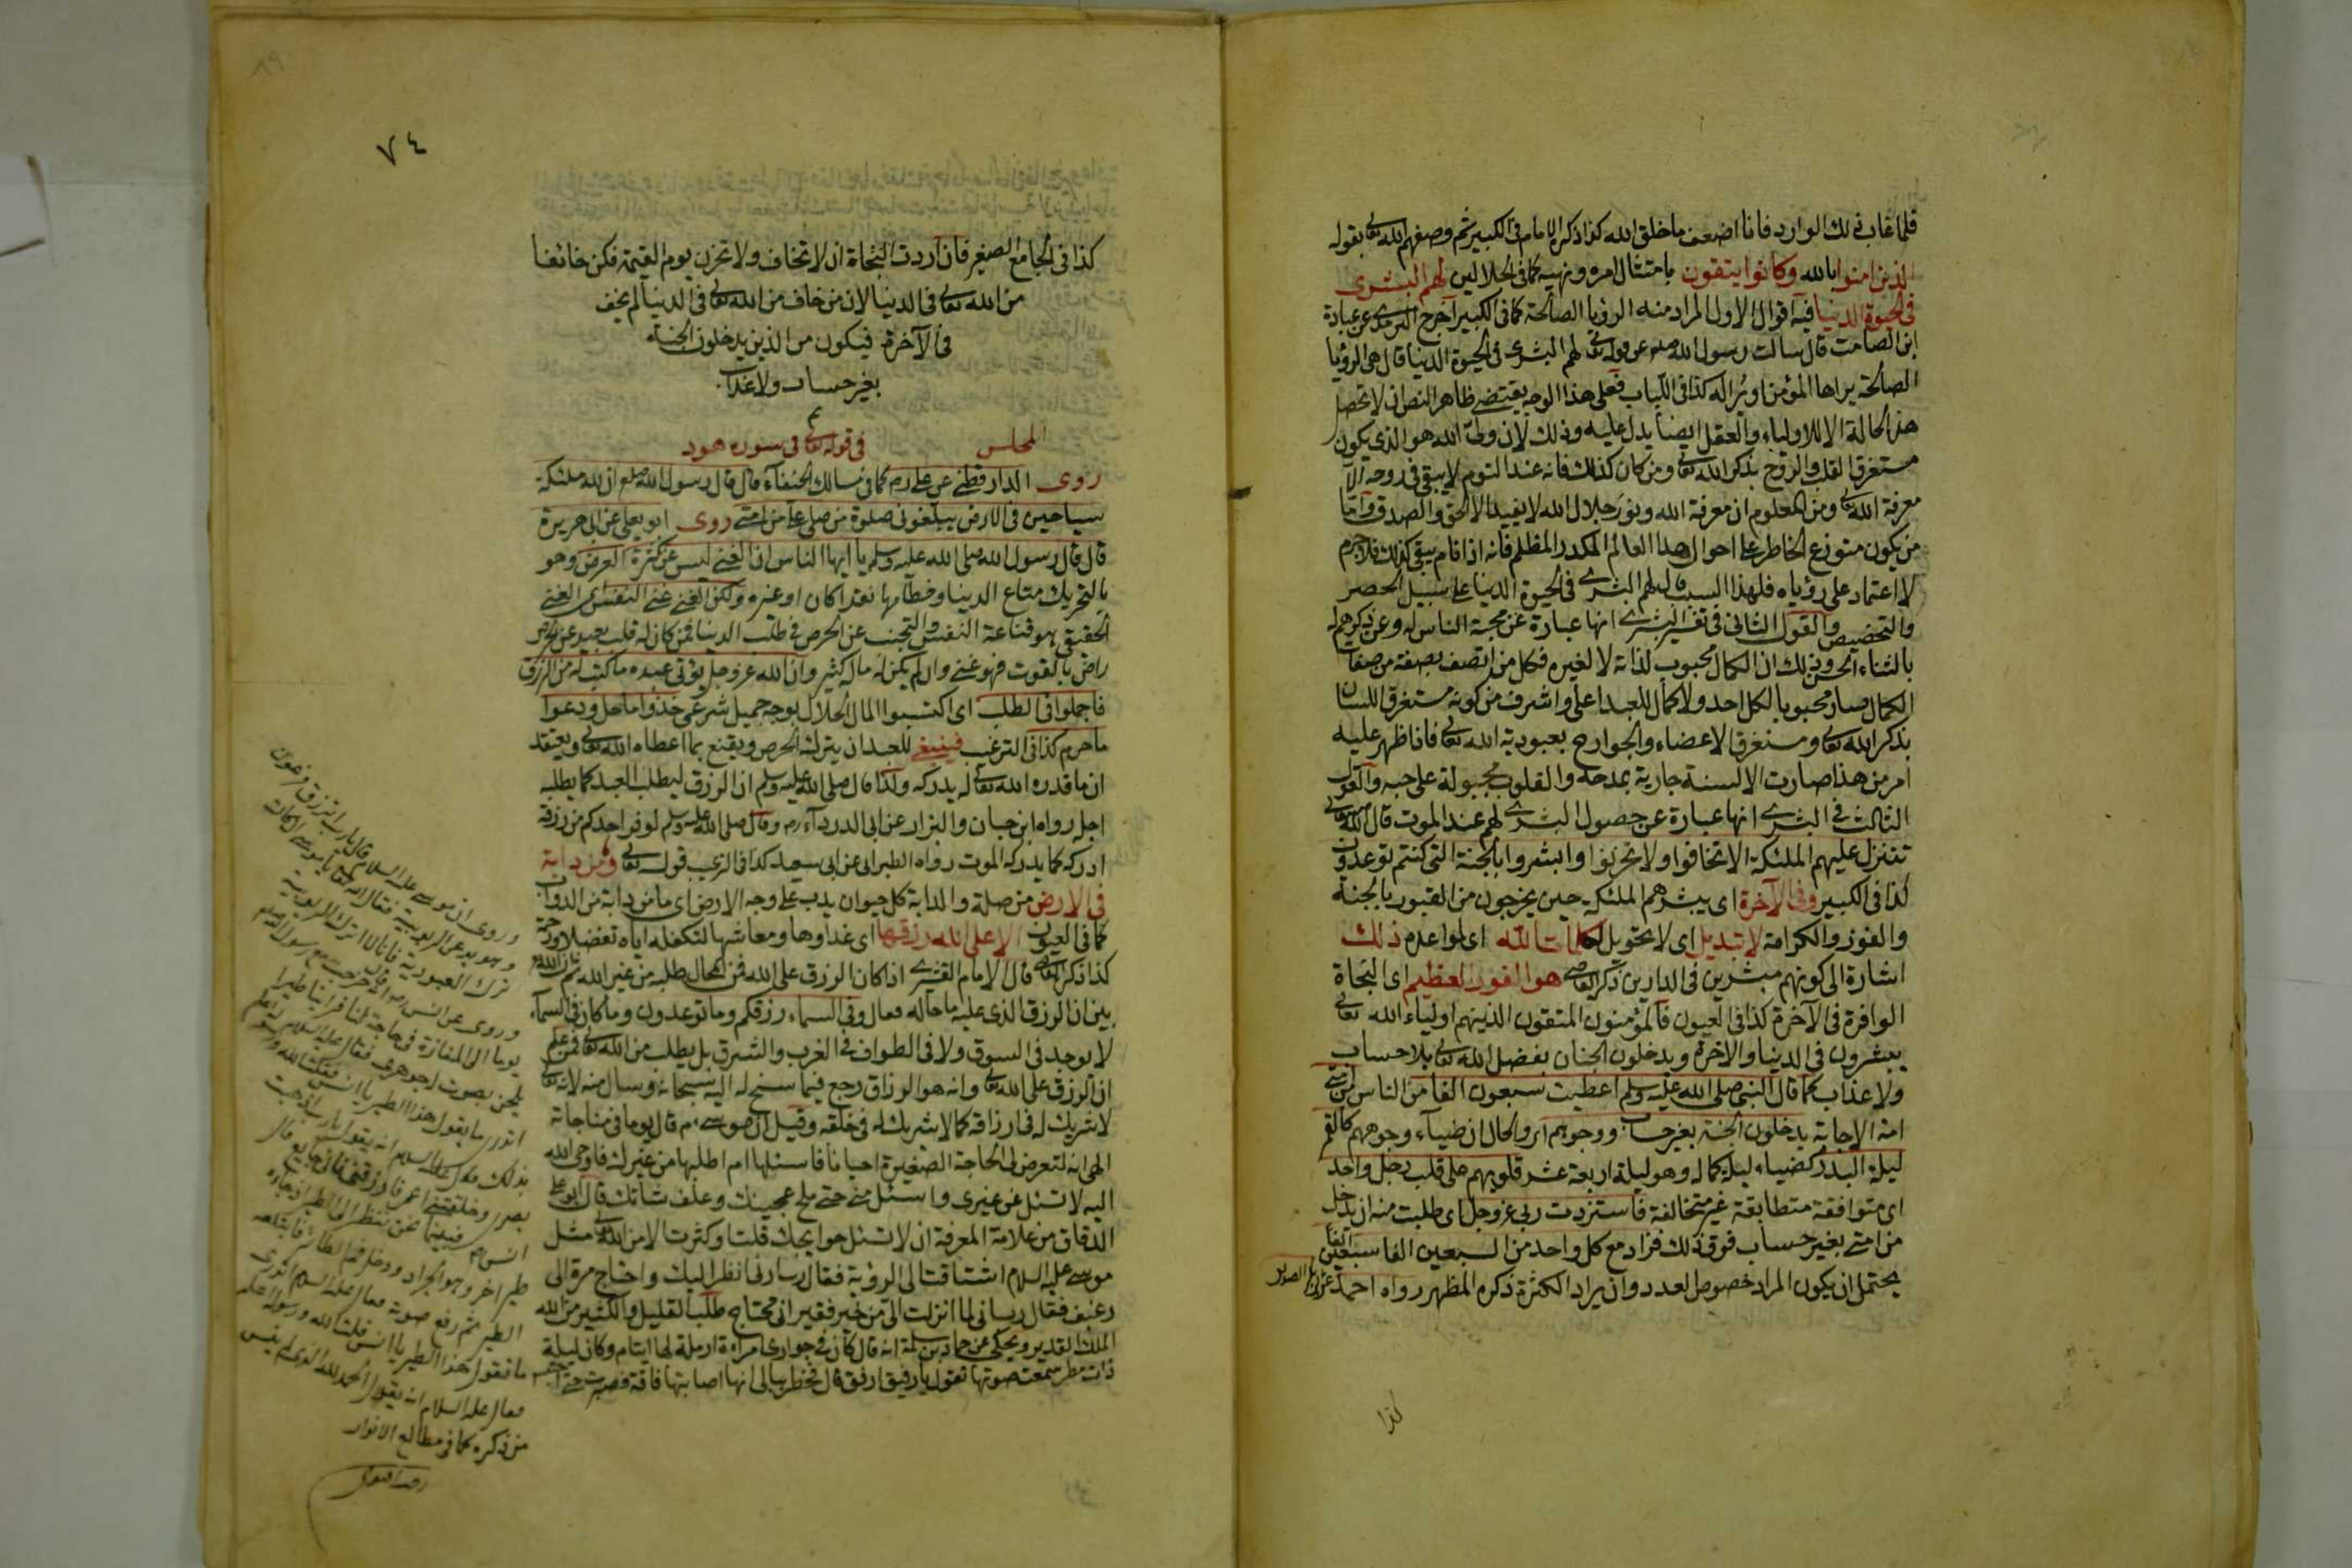 فلما غاب ذلك الوارد فانا اضعف ما خلق الله كذا ذكره الامام فى الكبير ثم وصفهم الله تعالى بقوله
الذين امنوا بالله وكانوا يتقون بامتثال امره ونهيه كما فى الجلالين لهم البشرى
فى الحيوة الدنيا فيه اقوال الاول المراد منه الرؤيا الصالحة كما فى الكبير اخرج الترمذى عن عبادة
ابن الصامت قال سالت رسول الله صلعم عن قوله تعالى لهم البشرى فى الحيوة الدنيا قال هى الرؤيا
الصالحة يراها المؤمن او يرى له كذا فى اللباب فعلى هذا الوجه يقتضى ظاهر النص ان لا تحصل
هذه الحالة الا للاولياء والعقل ايضا يدل عليه وذلك لان ولى الله هو الذى يكون
مستغرق القلب والروح بذكر الله تعالى ومن كان كذلك فانه عند النوم لا يبقى فى روحه الا
معرفة الله تعالى ومن المعلوم ان معرفة الله ونور جلال الله لا يفيد الا الحق والصدق واما
من يكون متوزع الخاطر على احوال هذا العالم المكدر المظلم فانه اذا قام يبقى كذلك فلا جرم
لا اعتماد على رؤياه فلهذا السبب قال لهم البشرى فى الحيوة الدنيا على سبيل الحصر
والتخصيص والقول الثانى فى تفسير البشرى انها عبارة عن محبة الناس له وعن ذكرهم له
بالثناء الحسن وذلك ان الكمال محبوب لذاته لا لغيره فكل من اتصف بصفة من صفات
الكمال صار محبوبا لكل احد ولا كمال للعبد اعلى واشرف من كونه مستغرق اللسان
بذكر الله تعالى ومستغرق الاعضاء والجوارح بعبودية الله تعالى فاذا ظهر عليه
امر من هذا صارت الالسنة جارية بمدحه والقلوب مجبولة على حبه والقول
الثالث فى البشرى انها عبارة عن حصول البشرى لهم عند الموت قال الله تعالى
تتنزل عليهم الملئكة الا تخافوا ولا تحزنوا وابشروا بالجنة التى كنتم توعدون
كذا فى الكبير وفى الآخرة اى يبشرهم الملئكة حين يخرجون من القبور بالجنة
والفوز والكرامة لا تبديل اى لا تحويل لكلمات الله اى لمواعده ذلك
اشارة الى كونهم مبشرين فى الدارين ذكره القاضى هو الفوز العظيم اى النجاة
الوافرة فى الآخرة كذا فى العيون فالمؤمنون المتقون الذينهم اولياء الله تعالى
يبشرون فى الدنيا والاخرة ويدخلون الجنان بفضل الله تعالى بلا حساب
ولا عذاب كما قال النبى صلى الله عليه وسلم اعطيت سبعون الفا من الناس من
امة الاجابة يدخلون الجنة بغير حساب ووجوههم اى والحال ان ضياء وجوههم كالقمر
ليلة البدر كضياء ليلة كماله وهو ليلة اربعة عشر قلوبهم على قلب رجل واحد
اى متوافقة متطابقة غير متخالفة فاستزدت ربى عز وجل اى طلبت منه ان يدخل
من امتى بغير حساب فوق ذلك فزاد مع كل واحد من السبعين الفا سبعين الفا
يحتمل ان يكون المراد خصوص العدد وان يراد الكثرة ذكره المظهر رواه احمد عن ابى بكر الصديق
كذا
٧٤
كذا فى الجامع الصغير فان اردت النجاة ان لا تخاف ولا تحزن يوم القيمة فكن خائفا
من الله تعالى فى الدنيا لان من خاف من الله تعالى فى الدنيا لم يخف
فى الآخرة فيكون من الذين يدخلون الجنة
بغير حساب ولا عذاب
المجلس فى قوله تعالى فى سورة هود
روى الدارقطنى عن على رم كما فى مسالك الحنفاء قال قال رسول الله صلعم ان لله ملئكة
سياحين فى الارض يبلغونى صلوة من صلى على من امتى روى ابو يعلى عن ابى هريرة
قال قال رسول الله صلى الله عليه وسلم يا ايها الناس ان الغنى ليس عن كثرة العرض وهو
بالتحريك متاع الدنيا وحطامها نقدا كان او غيره ولكن الغنى غنى النفس اى الغنى
الحقيقى هو قناعة النفس والتجنب عن الحرص فى طلب الدنيا فمن كان له قلب بعيد عن الحرص
راض بالقوت فهو غنى وان لم يكن له مال كثير وان الله عز وجل يؤتى عبده ما كتب له من الرزق
فاجملوا فى الطلب اى اكتسبوا المال الحلال بوجه جميل شرعى خذوا ما حل ودعوا
ما حرم كذا فى الترغيب فينبغى للعبد ان يترك الحرص ويقنع بما اعطاه الله تعالى ويعتقد
ان ما قدره الله تعالى له يدركه ولذا قال صلى الله عليه وسلم ان الرزق ليطلب العبد كما يطلبه
اجله رواه ابن حبان والبزار عن ابى الدرداء رم وقال صلى الله عليه وسلم لو فر احدكم من رزقه
ادركه كما يدركه الموت رواه الطبرانى عن ابى سعيد كذا فى الترغيب قوله تعالى وما من دابة
فى الارض من صلة والدابة كل حيوان يدب على وجه الارض اى ما من دابة من الدواب
كما فى العيون الا على الله رزقها اى غذاؤها ومعاشها لتكفله اياه تفضلا ورحمة
كذا ذكره القاضى قال الامام القشيرى اذا كان الرزق على الله فمن المحال طلبه من غير الله ثم
بين ان الرزق الذى عليه ما حاله فقال وفى السماء رزقكم وما توعدون وما كان فى السماء
لا يوجد فى السوق ولا فى الطواف فى الغرب والشرق بل يطلب من الله تعالى فمن علم
ان الرزق على الله تعالى وانه هو الرزاق رجع فيما سنح له اليه سبحانه وسال منه لانه تعالى
لا شريك له فى ارزاقه كما لا شريك له فى خلقه وقيل ان موسى ءم قال يوما فى مناجاته
الهى انه لتعرض لى الحاجة الصغيرة احيانا فاسئلها ام اطلبها من غيرك فاوحى الله
اليه لا تسئل عن غيرى واسئل منى حتى ملح عجينك وعلف شاتك قال ابو على
الدقاق من علامة المعرفة ان لا تسئل حوايجك قلت او كثرت الا من الله تعالى مثل
موسى عليه السلام اشتاقت الى الرؤية فقال رب ارنى انظر اليك واحتاج مرة الى
رغيف فقال رب انى لما انزلت الى من خير فقير انى محتاج طلب القليل والكثير من الله
الملك القدير ويحكى عن حماد بن سلمة انه قال كان فى جوارى امراءة ارملة لها ايتام وكان ليلة
ذات مطر سمعت صوتها تقول يا رفيق ارفق قال فخطر ببالى انها اصابتها فاقة فصبرت حتى
وروى ان موسى عليه السلام قال يا رب ترزق فرعون
وهو يدعى الربوبية فقال الله تعالى يا موسى ان كان
ترك العبودية فانا لا اترك الربوبية
وروى عن انس رم انه قال خرجت مع رسول الله صلعم
يوما الى المفازة فى حاجة لنا فراينا طيرا
يلحن بصوت جوهرى فقال عليه السلام
اتدرى ما يقول هذا الطير يا انس فقلت الله ورسوله
بذلك قال عليه السلام انه يقول يا رب اذهبت
بصرى وخلقتنى اعمى فارزقنى فانى جايع قال
انس رم فبينما نحن ننظر الى الطير اذ جاءه
طير اخر وهو الجراد ودخل فم الطائر فابتلعه
الطير ثم رفع صوته فقال عليه السلام اتدرى
ما تقول هذا الطير يا انس قلت الله ورسوله اعلم
فقال عليه السلام انه يقول الحمد لله الذى لم ينس
من ذكره كما فى مطالع الانوار